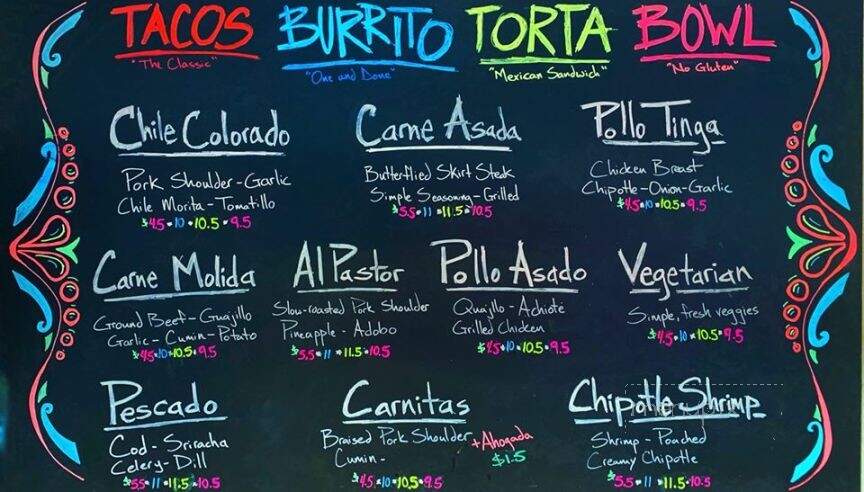 TACOS BURRITO TORTA BOWL
"The Classic" "One and Done" "Mexican Sandwich" "No Gluten"
Chile Colorado
Pork Shoulder - Garlic
Chile Morita - Tomatillo
$4.5 • 10 • 10.5 • 9.5
Carne Asada
Butterflied Skirt Steak
Simple Seasoning - Grilled
$5.5 • 11 • 11.5 • 10.5
Pollo Tinga
Chicken Breast
Chipotle - Onion - Garlic
$4.5 • 10 • 10.5 • 9.5
Carne Molida
Ground Beef - Guajillo
Garlic - Cumin - Potato
$4.5 • 10 • 10.5 • 9.5
Al Pastor
Slow-roasted Pork Shoulder
Pineapple - Adobo
$5.5 • 11 • 11.5 • 10.5
Pollo Asado
Quajillo - Achiote
Grilled Chicken
$4.5 • 10 • 10.5 • 9.5
Vegetarian
Simple, fresh veggies
$4.5 • 10 • 10.5 • 9.5
Pescado
Cod - Sriracha
Celery - Dill
$5.5 • 11 • 11.5 • 10.5
Carnitas
Braised Pork Shoulder
Cumin -
+ Ahogada
$1.5
$4.5 • 10 • 10.5 • 9.5
Chipotle Shrimp
Shrimp - Poached
Creamy Chipotle
$5.5 • 11 • 11.5 • 10.5